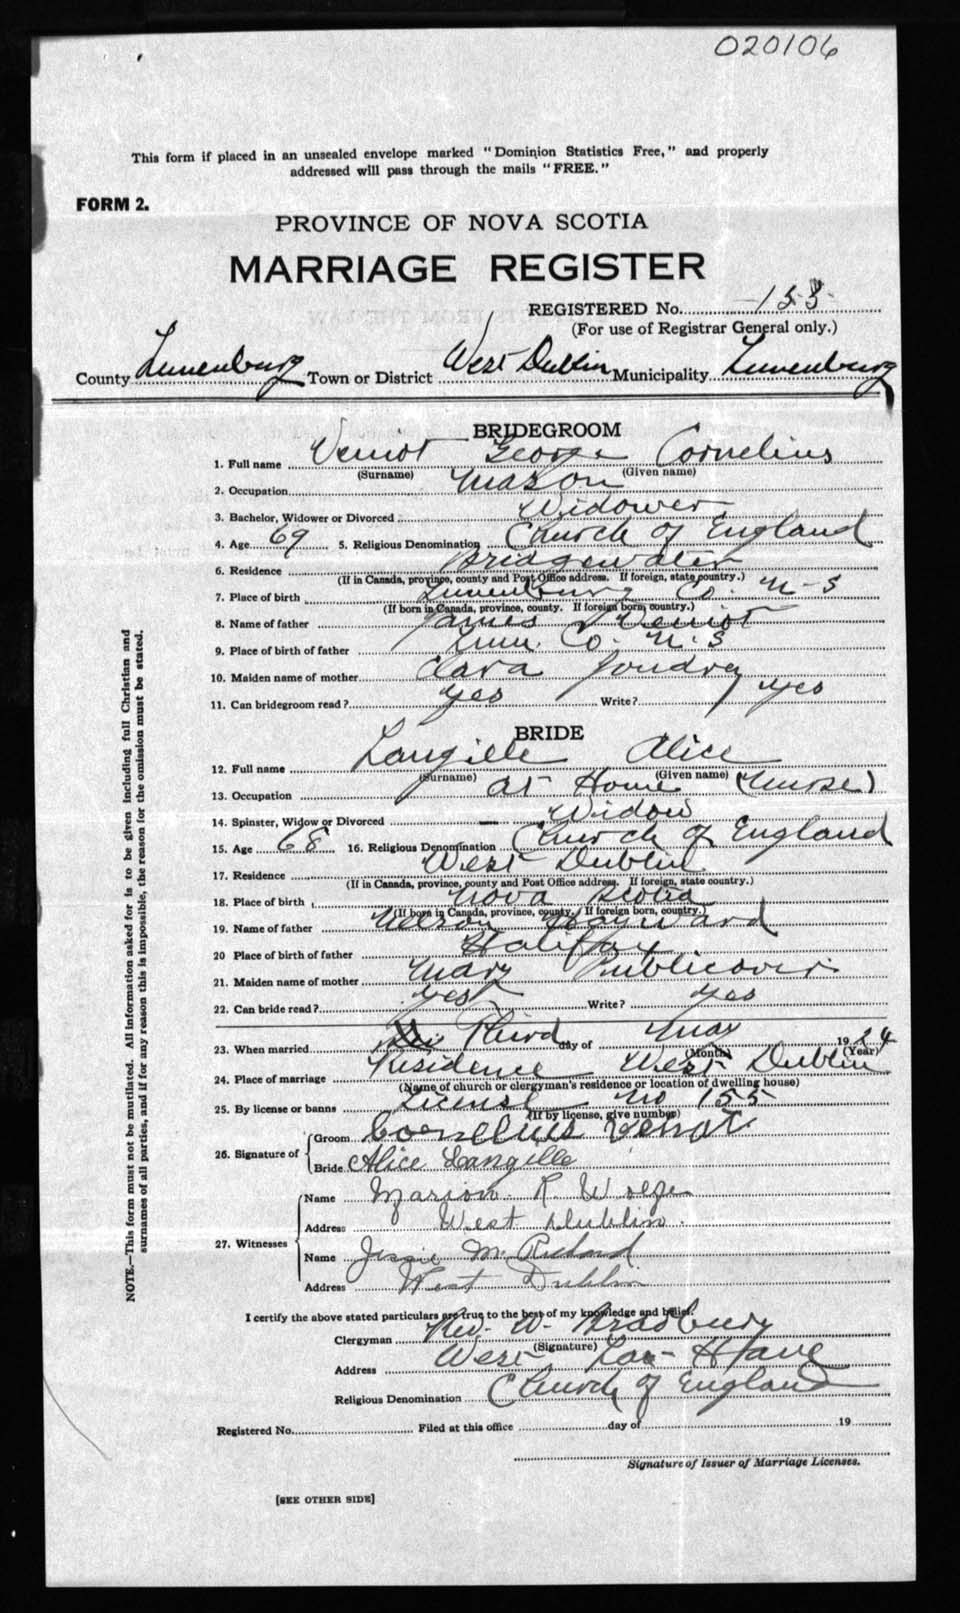 020106
This form if placed in an unsealed envelope marked "Dominion Statistics Free," and properly
addressed will pass through the mails "FREE."
FORM 2.
PROVINCE OF NOVA SCOTIA
MARRIAGE REGISTER
REGISTERED No. 153
(For use of Registrar General only.)
County Lunenburg Town or District West Dublin Municipality Lunenburg
BRIDEGROOM
1. Full name Veniot George Cornelius
(Surname) (Given name)
2. Occupation Mason
3. Bachelor, Widower or Divorced Widower
4. Age 69 5. Religious Denomination Church of England
6. Residence Bridgewater
(If in Canada, province, county and Post Office address. If foreign, state country.)
7. Place of birth Lunenburg Co. N-S
(If born in Canada, province, county. If foreign born, country.)
8. Name of father James Veniot
9. Place of birth of father Lun. Co. N.S
10. Maiden name of mother Clara Joudrey
11. Can bridegroom read? Yes Write? Yes
BRIDE
12. Full name Langille Alice
(Surname) (Given name)
13. Occupation at Home (Nurse)
14. Spinster, Widow or Divorced - Widow
15. Age 68 16. Religious Denomination Church of England
17. Residence West Dublin
(If in Canada, province, county and Post Office address. If foreign, state country.)
18. Place of birth Nova Scotia
(If born in Canada, province, county. If foreign born, country.)
19. Name of father Nelson Hayward
20 Place of birth of father Halifax
21. Maiden name of mother Mary Publicover
22. Can bride read? yes Write? yes
23. When married Third day of May 1924
(Month) (Year)
24. Place of marriage Residence West Dublin
(Name of church or clergyman's residence or location of dwelling house)
25. By license or banns License No 155
(If by license, give number)
26. Signature of Groom Cornelius Veniot
Bride Alice Langille
27. Witnesses
Name Marion R. Wolfe
Address West Dublin.
Name Jessie M. Richard
Address West Dublin
I certify the above stated particulars are true to the best of my knowledge and belief.
Clergyman Rev. W. Bradbury
(Signature)
Address West La Have
Religious Denomination Church of England
Registered No. Filed at this office day of 19
Signature of Issuer of Marriage Licenses.
[SEE OTHER SIDE]
NOTE.—This form must not be mutilated. All information asked for is to be given including full Christian and
surnames of all parties, and if for any reason this is impossible, the reason for the omission must be stated.